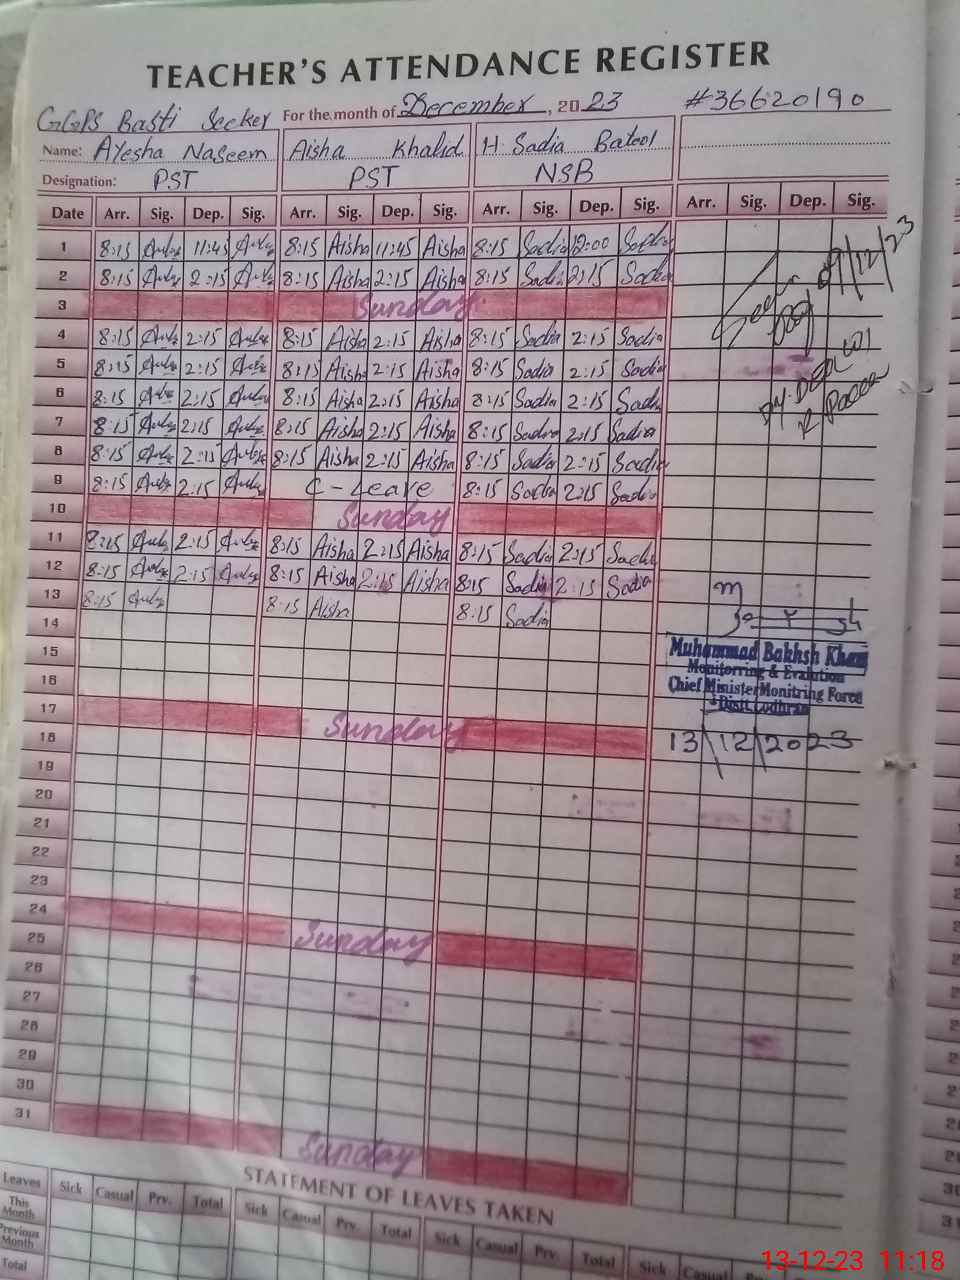 TEACHER'S ATTENDANCE REGISTER
GGPS Basti Seeker For the month of December, 2023 #36620190
Name: Ayesha Naseem Aisha Khalid H. Sadia Batool
Designation: PST PST NSB
Date Arr. Sig. Dep. Sig. Arr. Sig. Dep. Sig. Arr. Sig. Dep. Sig. Arr. Sig. Dep. Sig.
1 8:15 11:45 8:15 Aisha 11:45 Aisha 8:15 Sadia 12:00 Sadia
2 8:15 2:15 8:15 Aisha 2:15 Aisha 8:15 Sadia 2:15 Sadia
3 Sunday
4 8:15 2:15 8:15 Aisha 2:15 Aisha 8:15 Sadia 2:15 Sadia
5 8:15 2:15 8:15 Aisha 2:15 Aisha 8:15 Sadia 2:15 Sadia
6 8:15 2:15 8:15 Aisha 2:15 Aisha 8:15 Sadia 2:15 Sadia
7 8:15 2:15 8:15 Aisha 2:15 Aisha 8:15 Sadia 2:15 Sadia
8 8:15 2:15 8:15 Aisha 2:15 Aisha 8:15 Sadia 2:15 Sadia
9 8:15 2:15 C-Leave 8:15 Sadia 2:15 Sadia
10 Sunday
11 8:15 2:15 8:15 Aisha 2:15 Aisha 8:15 Sadia 2:15 Sadia
12 8:15 2:15 8:15 Aisha 2:15 Aisha 8:15 Sadia 2:15 Sadia
13 8:15 8:15 Aisha 8:15 Sadia
14
15
16
17 Sunday
18
19
20
21
22
23
24 Sunday
25
26
27
28
29
30
31 Sunday
Seen
09/12/23
Muhammad Bakhsh Khan
Monitorring & Evalution
Chief Minister Monitring Force
Distt Lodhran
13/12/2023
STATEMENT OF LEAVES TAKEN
Leaves Sick Casual Prv. Total Sick Casual Prv. Total Sick Casual Prv. Total Sick Casual Prv. Total
This Month
Previous Month
Total
13-12-23 11:18